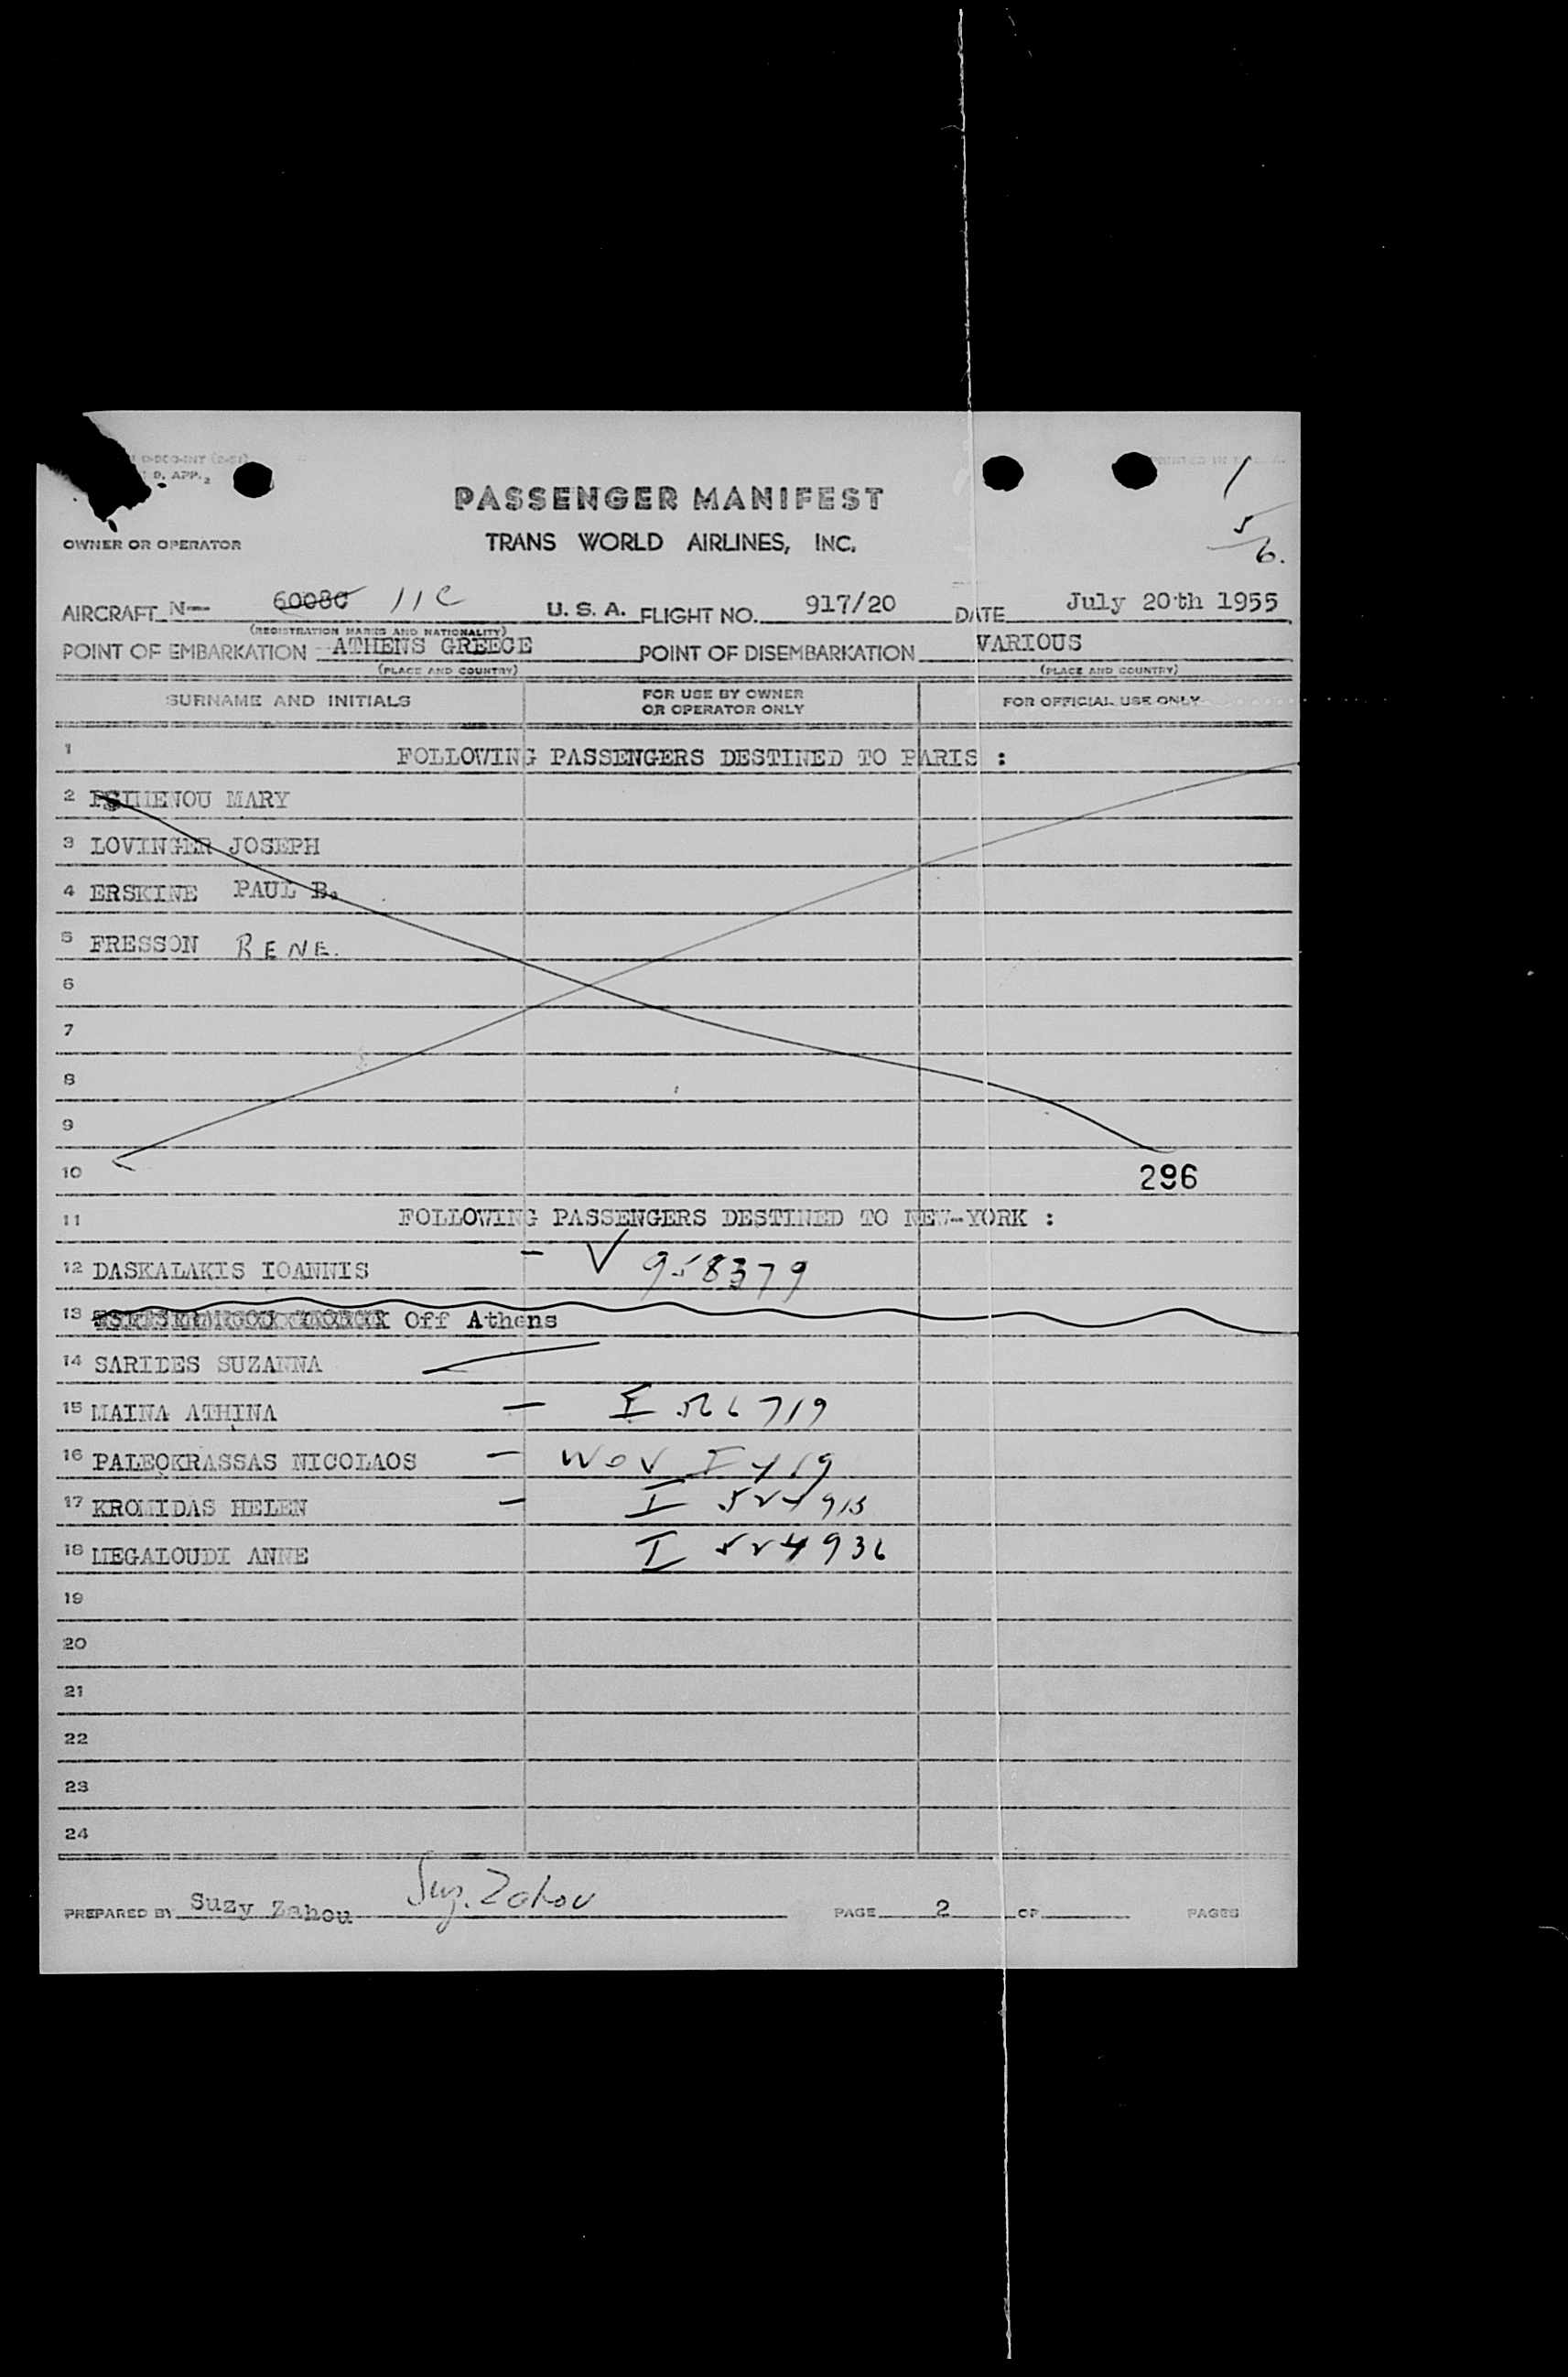 D, APP. 2
PASSENGER MANIFEST
OWNER OR OPERATOR TRANS WORLD AIRLINES, INC.
1
5
6.
AIRCRAFT N— 6008C 11C U. S. A. FLIGHT NO. 917/20 DATE July 20th 1955
(REGISTRATION MARKS AND NATIONALITY)
POINT OF EMBARKATION ATHENS GREECE POINT OF DISEMBARKATION VARIOUS
(PLACE AND COUNTRY) (PLACE AND COUNTRY)
SURNAME AND INITIALS FOR USE BY OWNER OR OPERATOR ONLY FOR OFFICIAL USE ONLY
1 FOLLOWING PASSENGERS DESTINED TO PARIS :
2 MARY
3 LOVINGER JOSEPH
4 ERSKINE PAUL B.
5 FRESSON RENE.
6
7
8
9
10 296
11 FOLLOWING PASSENGERS DESTINED TO NEW-YORK :
12 DASKALAKIS IOANNIS - √ 958379
13 Off Athens
14 SARIDES SUZANNA
15 MAINA ATHINA — I 526719
16 PALEOKRASSAS NICOLAOS —
17 KROMIDAS HELEN — I
18 MEGALOUDI ANNE I 524936
19
20
21
22
23
24
PREPARED BY Suzy Zahou Suz. Zahou PAGE 2 OF PAGES